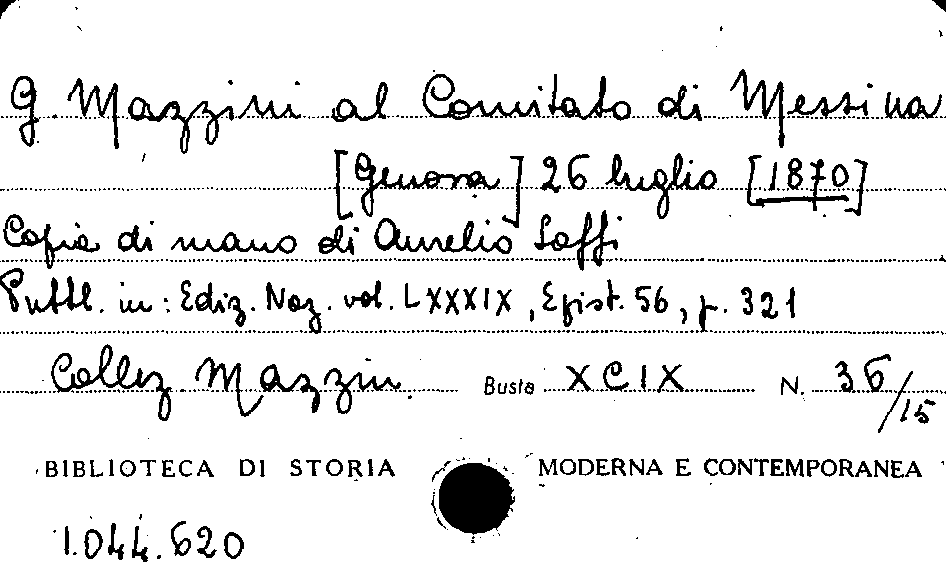 G. Mazzini al Comitato di Messina
[Genova] 26 luglio [1870]
Copia di mano di Aurelio Saffi
Pubbl. in: Ediz. Naz. vol. LXXXIX, Epist. 56, p. 321
Collez. Mazzini Busta XCIX N. 36/15
BIBLIOTECA DI STORIA MODERNA E CONTEMPORANEA
1.044.620